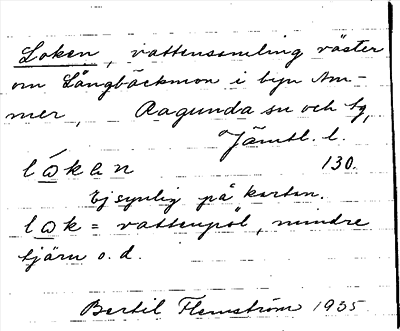 Loken, vattensamling väster
om Långbäckmon i byn Am-
mer, Ragunda sn och tg,
Jämtl. l.
lòkan 130.
Ej synlig på kartan.
lok = vattenpöl, mindre
tjärn o. d.
Bertil Flemström 1935